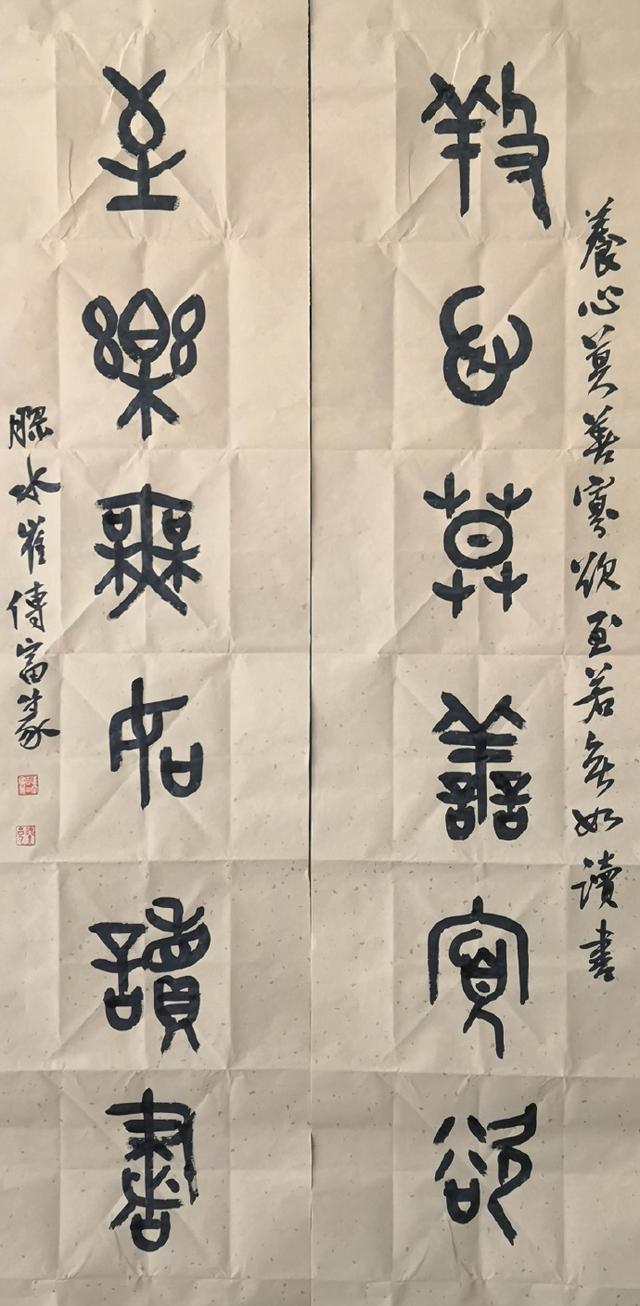 養心莫善寡欲至若無如讀書
養心莫善寡欲
至樂無如讀書
膠水崔傳富篆